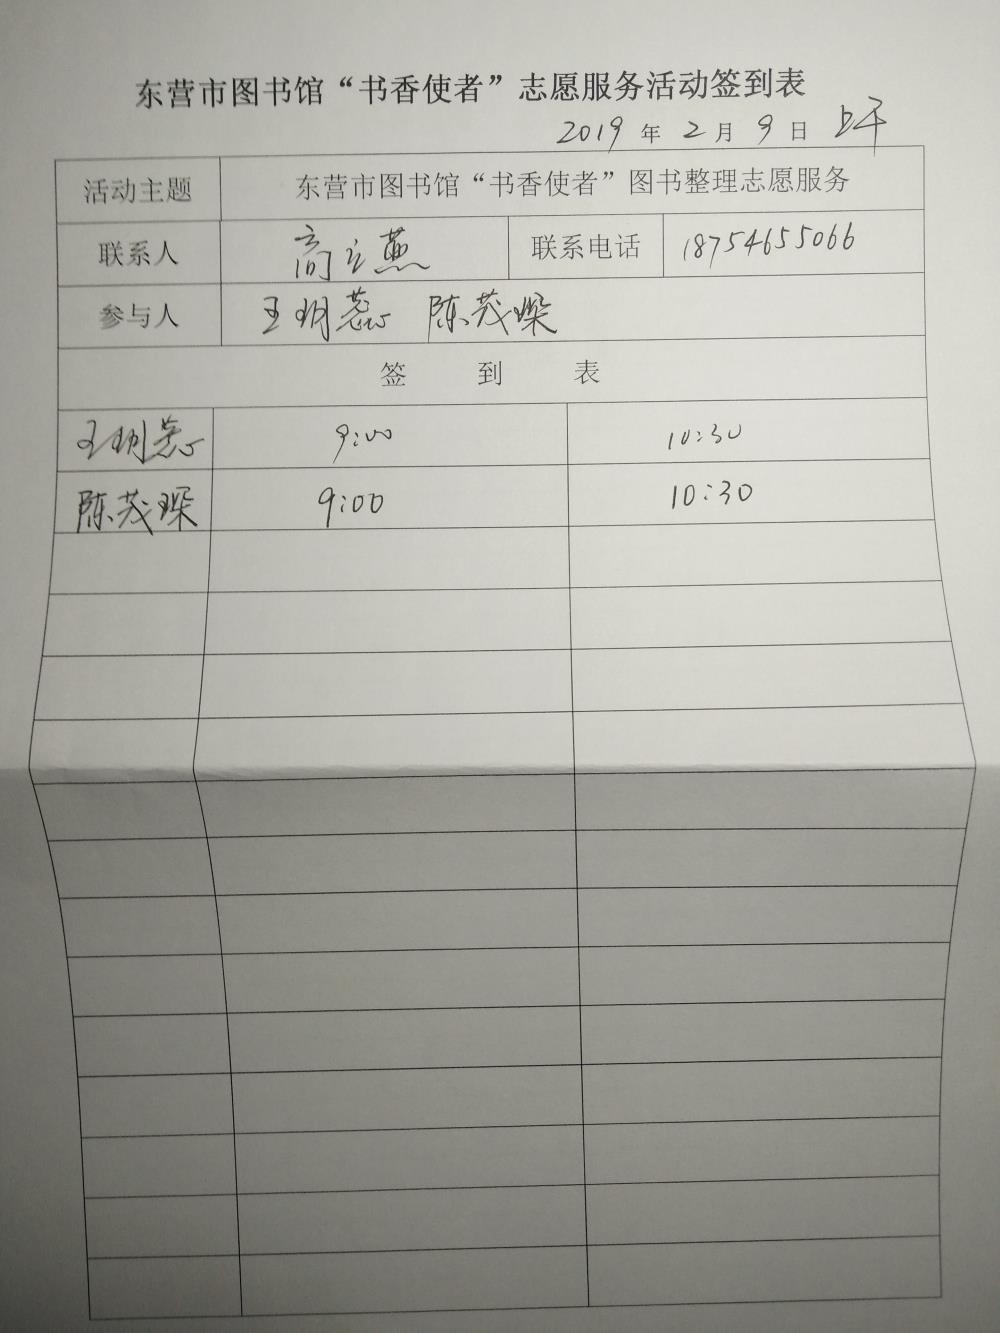 东营市图书馆“书香使者”志愿服务活动签到表
2019年2月9日 上午
活动主题 东营市图书馆“书香使者”图书整理志愿服务
联系人 商立燕 联系电话 18754655066
参与人 王玥蕊 陈茂琛
签到表
王玥蕊 9:00 10:30
陈茂琛 9:00 10:30